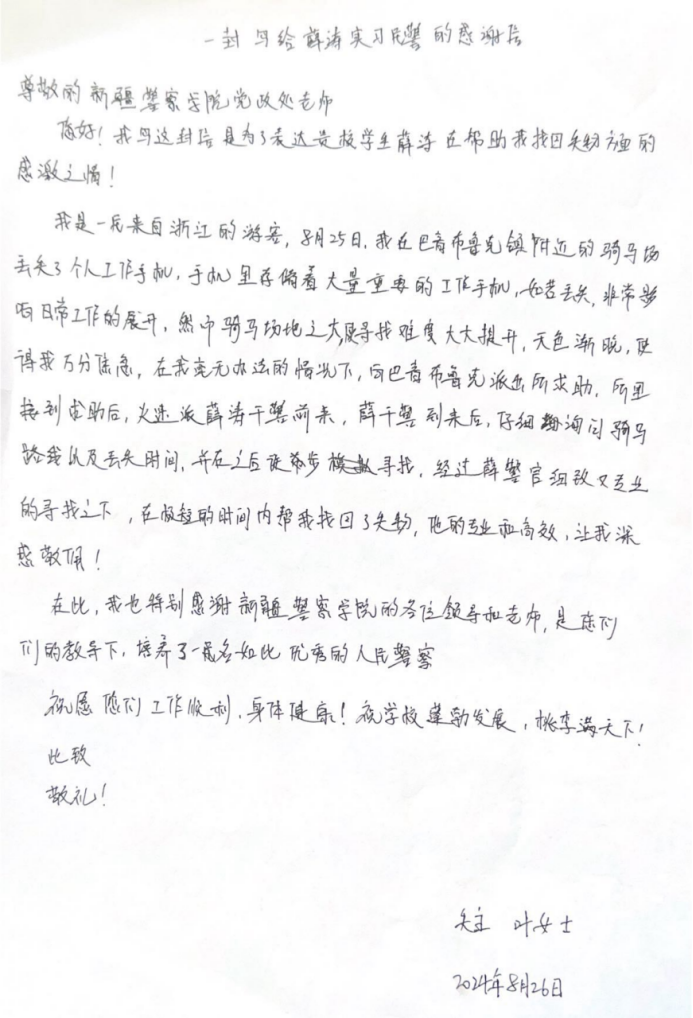 一封写给薛涛实习民警的感谢信
尊敬的新疆警察学院党政处老师
您好！我写这封信是为了表达贵校学生薛涛在帮助我找回失物方面的
感激之情！
我是一名来自浙江的游客，8月25日，我在巴音布鲁克镇附近的骑马场
丢失了个人工作手机，手机里存储着大量重要的工作手机，如若丢失，非常影
响日常工作的展开，然而骑马场地之大使寻找难度大大提升，天色渐晚，使
得我万分焦急，在我毫无办法的情况下，向巴音布鲁克派出所求助，所里
接到求助后，火速派薛涛干警前来，薛干警到来后，仔细询问骑马
路线以及丢失时间，并在之后徒步寻找，经过薛警官细致又专业
的寻找之下，在极短的时间内帮我找回了失物，他的专业和高效，让我深
感敬佩！
在此，我也特别感谢新疆警察学院的各位领导和老师，是您们
们的教导下，培养了一名如此优秀的人民警察
祝愿您们工作顺利，身体健康！祝学校蓬勃发展，桃李满天下！
此致
敬礼！
失主 叶女士
2024年8月26日